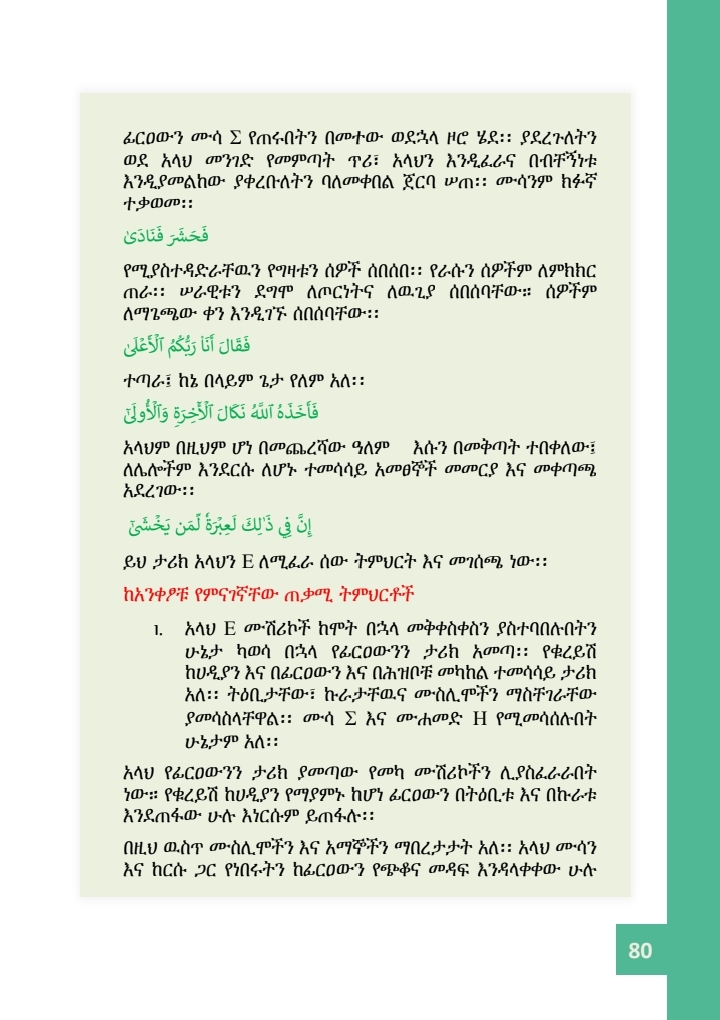 ፊርዐውን ሙሳ Σ የጠሩበትን በመተው ወደኋላ ዞሮ ሄደ፡፡ ያደረጉለትን
ወደ አላህ መንገድ የመምጣት ጥሪ፣ አላህን እንዲፈራና በብቸኝነቱ
እንዲያመልከው ያቀረቡለትን ባለመቀበል ጀርባ ሠጠ፡፡ ሙሳንም ክፉኛ
ተቃወመ፡፡
فَحَشَرَ فَنَادَىٰ
የሚያስተዳድራቸዉን የግዛቱን ሰዎች ሰበሰበ፡፡ የራሱን ሰዎችም ለምክክር
ጠራ፡፡ ሠራዊቱን ደግሞ ለጦርነትና ለዉጊያ ሰበሰባቸው። ሰዎችም
ለማጌጫው ቀን እንዲገኙ ሰበሰባቸው፡፡
فَقَالَ أَنَا۠ رَبُّكُمُ ٱلْأَعْلَىٰ
ተጣራ፤ ከኔ በላይም ጌታ የለም አለ፡፡
فَأَخَذَهُ ٱللَّهُ نَكَالَ ٱلْأَخِرَةِ وَٱلْأُولَىٰٓ
አላህም በዚህም ሆነ በመጨረሻው ዓለም እሱን በመቅጣት ተበቀለው፤
ለሌሎችም እንደርሱ ለሆኑ ተመሳሳይ አመፀኞች መመርያ እና መቀጣጫ
አደረገው፡፡
إِنَّ فِي ذَٰلِكَ لَعِبْرَةً لِّمَن يَخْشَىٰٓ
ይህ ታሪክ አላህን E ለሚፈራ ሰው ትምህርት እና መገሰጫ ነው፡፡
ከአንቀፆቹ የምናገኛቸው ጠቃሚ ትምህርቶች
1. አላህ E ሙሽሪኮች ከሞት በኋላ መቅቀስቀስን ያስተባበሉበትን
ሁኔታ ካወሳ በኋላ የፊርዐውንን ታሪክ አመጣ፡፡ የቁረይሽ
ከሀዲያን እና በፊርዐውን እና በሕዝቦቹ መካከል ተመሳሳይ ታሪክ
አለ፡፡ ትዕቢታቸው፣ ኩራታቸዉና ሙስሊሞችን ማስቸገራቸው
ያመሳስላቸዋል፡፡ ሙሳ Σ እና ሙሐመድ H የሚመሳሰሉበት
ሁኔታም አለ፡፡
አላህ የፊርዐውንን ታሪክ ያመጣው የመካ ሙሽሪኮችን ሊያስፈራራበት
ነው። የቁረይሽ ከሀዲያን የማያምኑ ከሆነ ፊርዐውን በትዕቢቱ እና በኩራቱ
እንደጠፋው ሁሉ እነርሱም ይጠፋሉ፡፡
በዚህ ዉስጥ ሙስሊሞችን እና አማኞችን ማበረታታት አለ፡፡ አላህ ሙሳን
እና ከርሱ ጋር የነበሩትን ከፊርዐውን የጭቆና መዳፍ እንዳላቀቀው ሁሉ
80